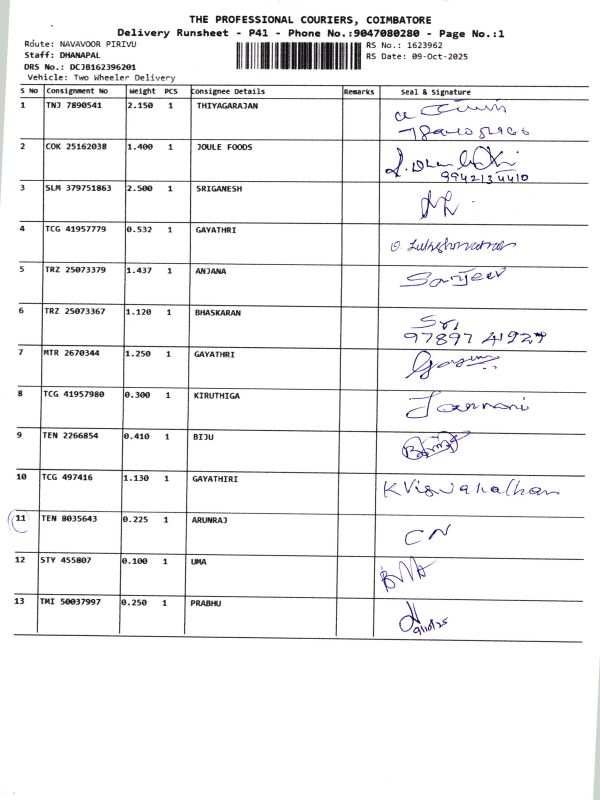 THE PROFESSIONAL COURIERS, COIMBATORE
Delivery Runsheet - P41 - Phone No.:9047080280 - Page No.:1
Route: NAVAVOOR PIRIVU RS No.: 1623962
Staff: DHANAPAL RS Date: 09-Oct-2025
DRS No.: DCJB162396201
Vehicle: Two Wheeler Delivery
S No Consignment No Weight PCS Consignee Details Remarks Seal & Signature
1 TNJ 7890541 2.150 1 THIYAGARAJAN
2 COK 25162038 1.400 1 JOULE FOODS
9942134410
3 SLM 379751863 2.500 1 SRIGANESH
4 TCG 41957779 0.532 1 GAYATHRI
5 TRZ 25073379 1.437 1 ANJANA Sanjeev
6 TRZ 25073367 1.120 1 BHASKARAN
97897 41927
7 MTR 2670344 1.250 1 GAYATHRI
8 TCG 41957980 0.300 1 KIRUTHIGA
9 TEN 2266854 0.410 1 BIJU
10 TCG 497416 1.130 1 GAYATHIRI K Viswanathan
11 TEN 8035643 0.225 1 ARUNRAJ CN
12 STY 455807 0.100 1 UMA
13 TMI 50037997 0.250 1 PRABHU
9/10/25